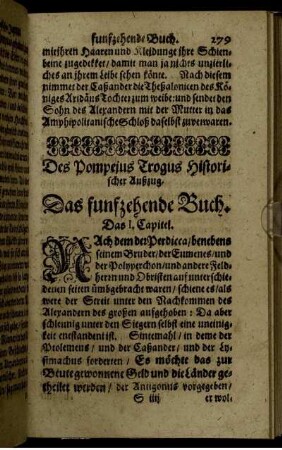 funfzehende Buch. 279
mit ihren Haaren und Kleidunge ihre Schien-
beine zugedekket / damit man ja nichts unzierli-
ches an ihrem Leibe sehen könte. Nach diesem
nimmet der Caßander die Theßalonicen des Kö-
niges Aridäus Tochter zum weibe: und sendet den
Sohn des Alexandern mit der Mutter in das
Amphipolitanische Schloß daselbst zuverwaren.
Des Pompejus Trogus Histori-
scher Außzug.
Das funfzehende Buch.
Das I. Capitel.
NAch dem der Perdicca / benebens
seinem Bruder / der Eumenes / und
der Polyperchon / und andere Feld-
herrn und Obristen auf unterschie-
denen seiten ümbgebracht waren / schiene es / als
were der Streit unter den Nachkommen des
Alexandern des großen aufgehaben: Da aber
schleunig unter den Siegern selbst eine uneinig-
keit enestanden ist. Sintemahl / in deme der
Ptolemeus / und der Caßander / und der Ly-
simachus forderten / Es möchte das zur
Beute gewonnene Geld und die Länder ge-
theilet werden / der Antigonus vorgegeben /
S iiij er wol-